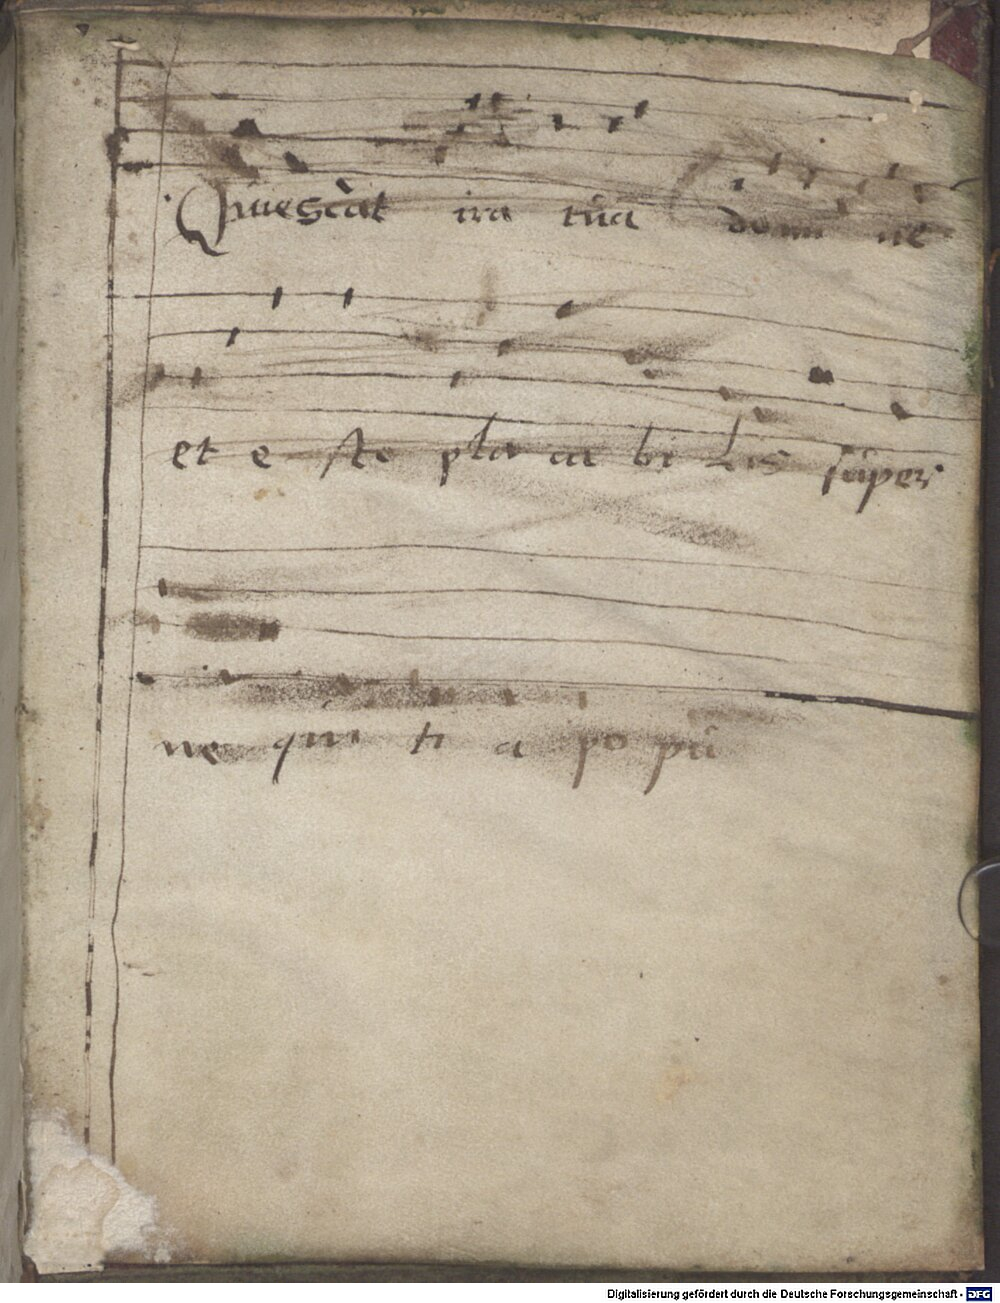 Quiescat ira tua domi ne
et e sto pla ca bi lis super
ne qui ti a po pu
Digitalisierung gefördert durch die Deutsche Forschungsgemeinschaft - DFG